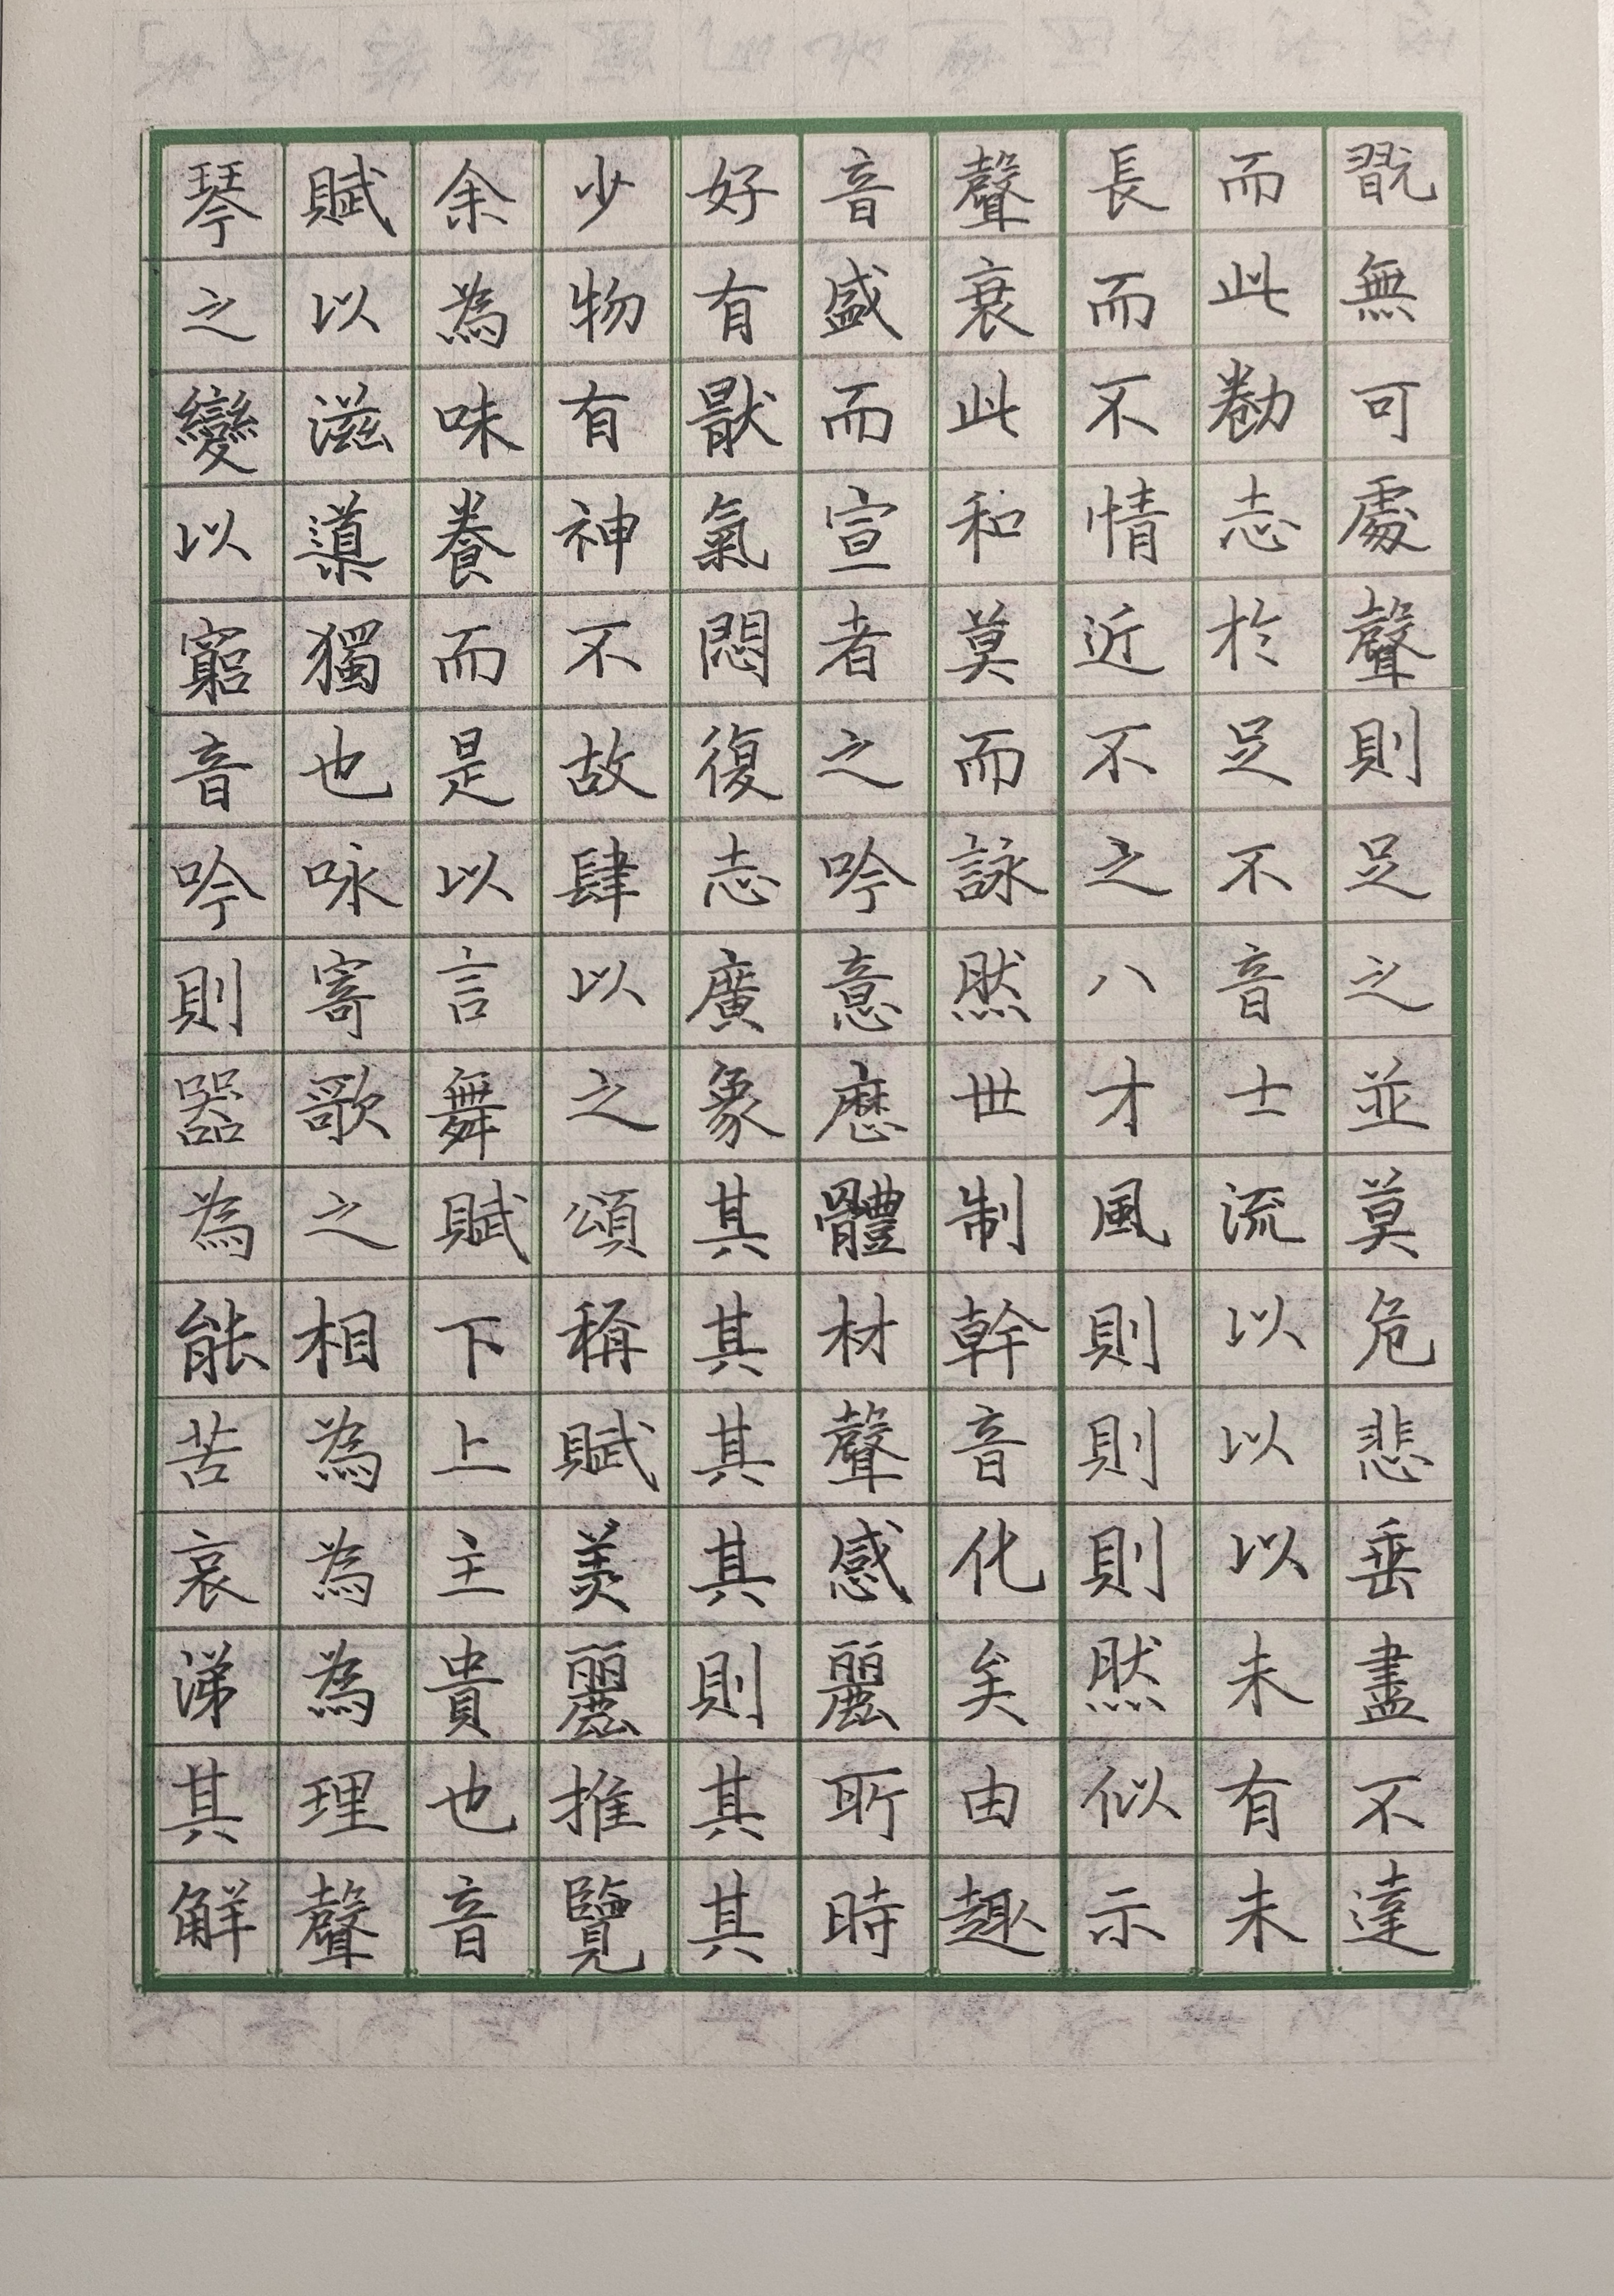 琴賦余少好音聲長而翫
之以為物有盛衰而此無
變滋味有猒而此不勌可
以導養神氣宣和情志處
窮獨而不悶者莫近於聲
音也是故復之而不足則
吟咏以肆志吟詠之不足
則寄言以廣意然八音之
器歌舞之象歷世才士並
為之賦頌其體制風流莫
能相下稱其材幹則以危
苦為上賦其聲音則以悲
哀為主美其感化則以垂
涕為貴麗則麗矣然未盡
其理也推其所由似有不
解聲音覽其時趣示未達